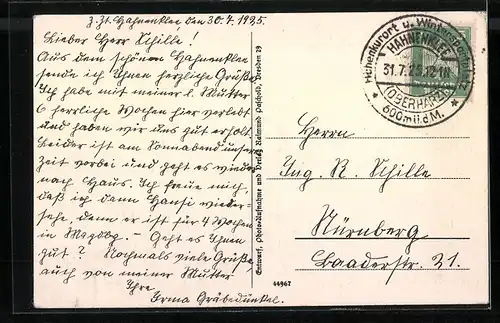 z. Zt. Hahnenklee den 30.7.1925.
Lieber Herr Schille!
Aus dem schönen Hahnenklee
sende ich Ihnen herzliche Grüße.
Ich habe mit meiner l. Mutter
6 herrliche Wochen hier verlebt
und haben wir uns gut erholt.
Leider ist am Sonnabend unsere
Zeit vorbei und geht es wieder
nach Haus. Ich freue mich,
daß ich dann Hansi wieder-
sehe, denn er ist für 4 Wochen
in Magdbg. - Geht es Ihnen
gut? Nochmals viele Grüße,
auch von meiner Mutter!
Ihre
Irma Gräbedünkel.
Entwurf, Photo-Aufnahme und Verlag Raimund Paschold, Dresden 19
44967
Höhenkurort u. Wintersportplatz
HAHNENKLEE
31.7.25.12-1N.
(OBERHARZ)
* 600m ü.d.M. *
Herrn
Ing. R. Schille
Nürnberg
Baaderstr. 21.